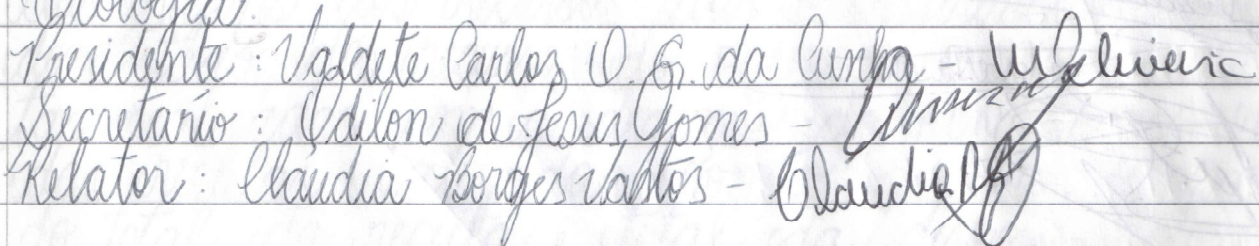 Presidente: Valdete Carlos O. G. da Cunha -
Secretário: Odilon de Jesus Gomes -
Relator: Cláudia Borges Santos - Cláudia